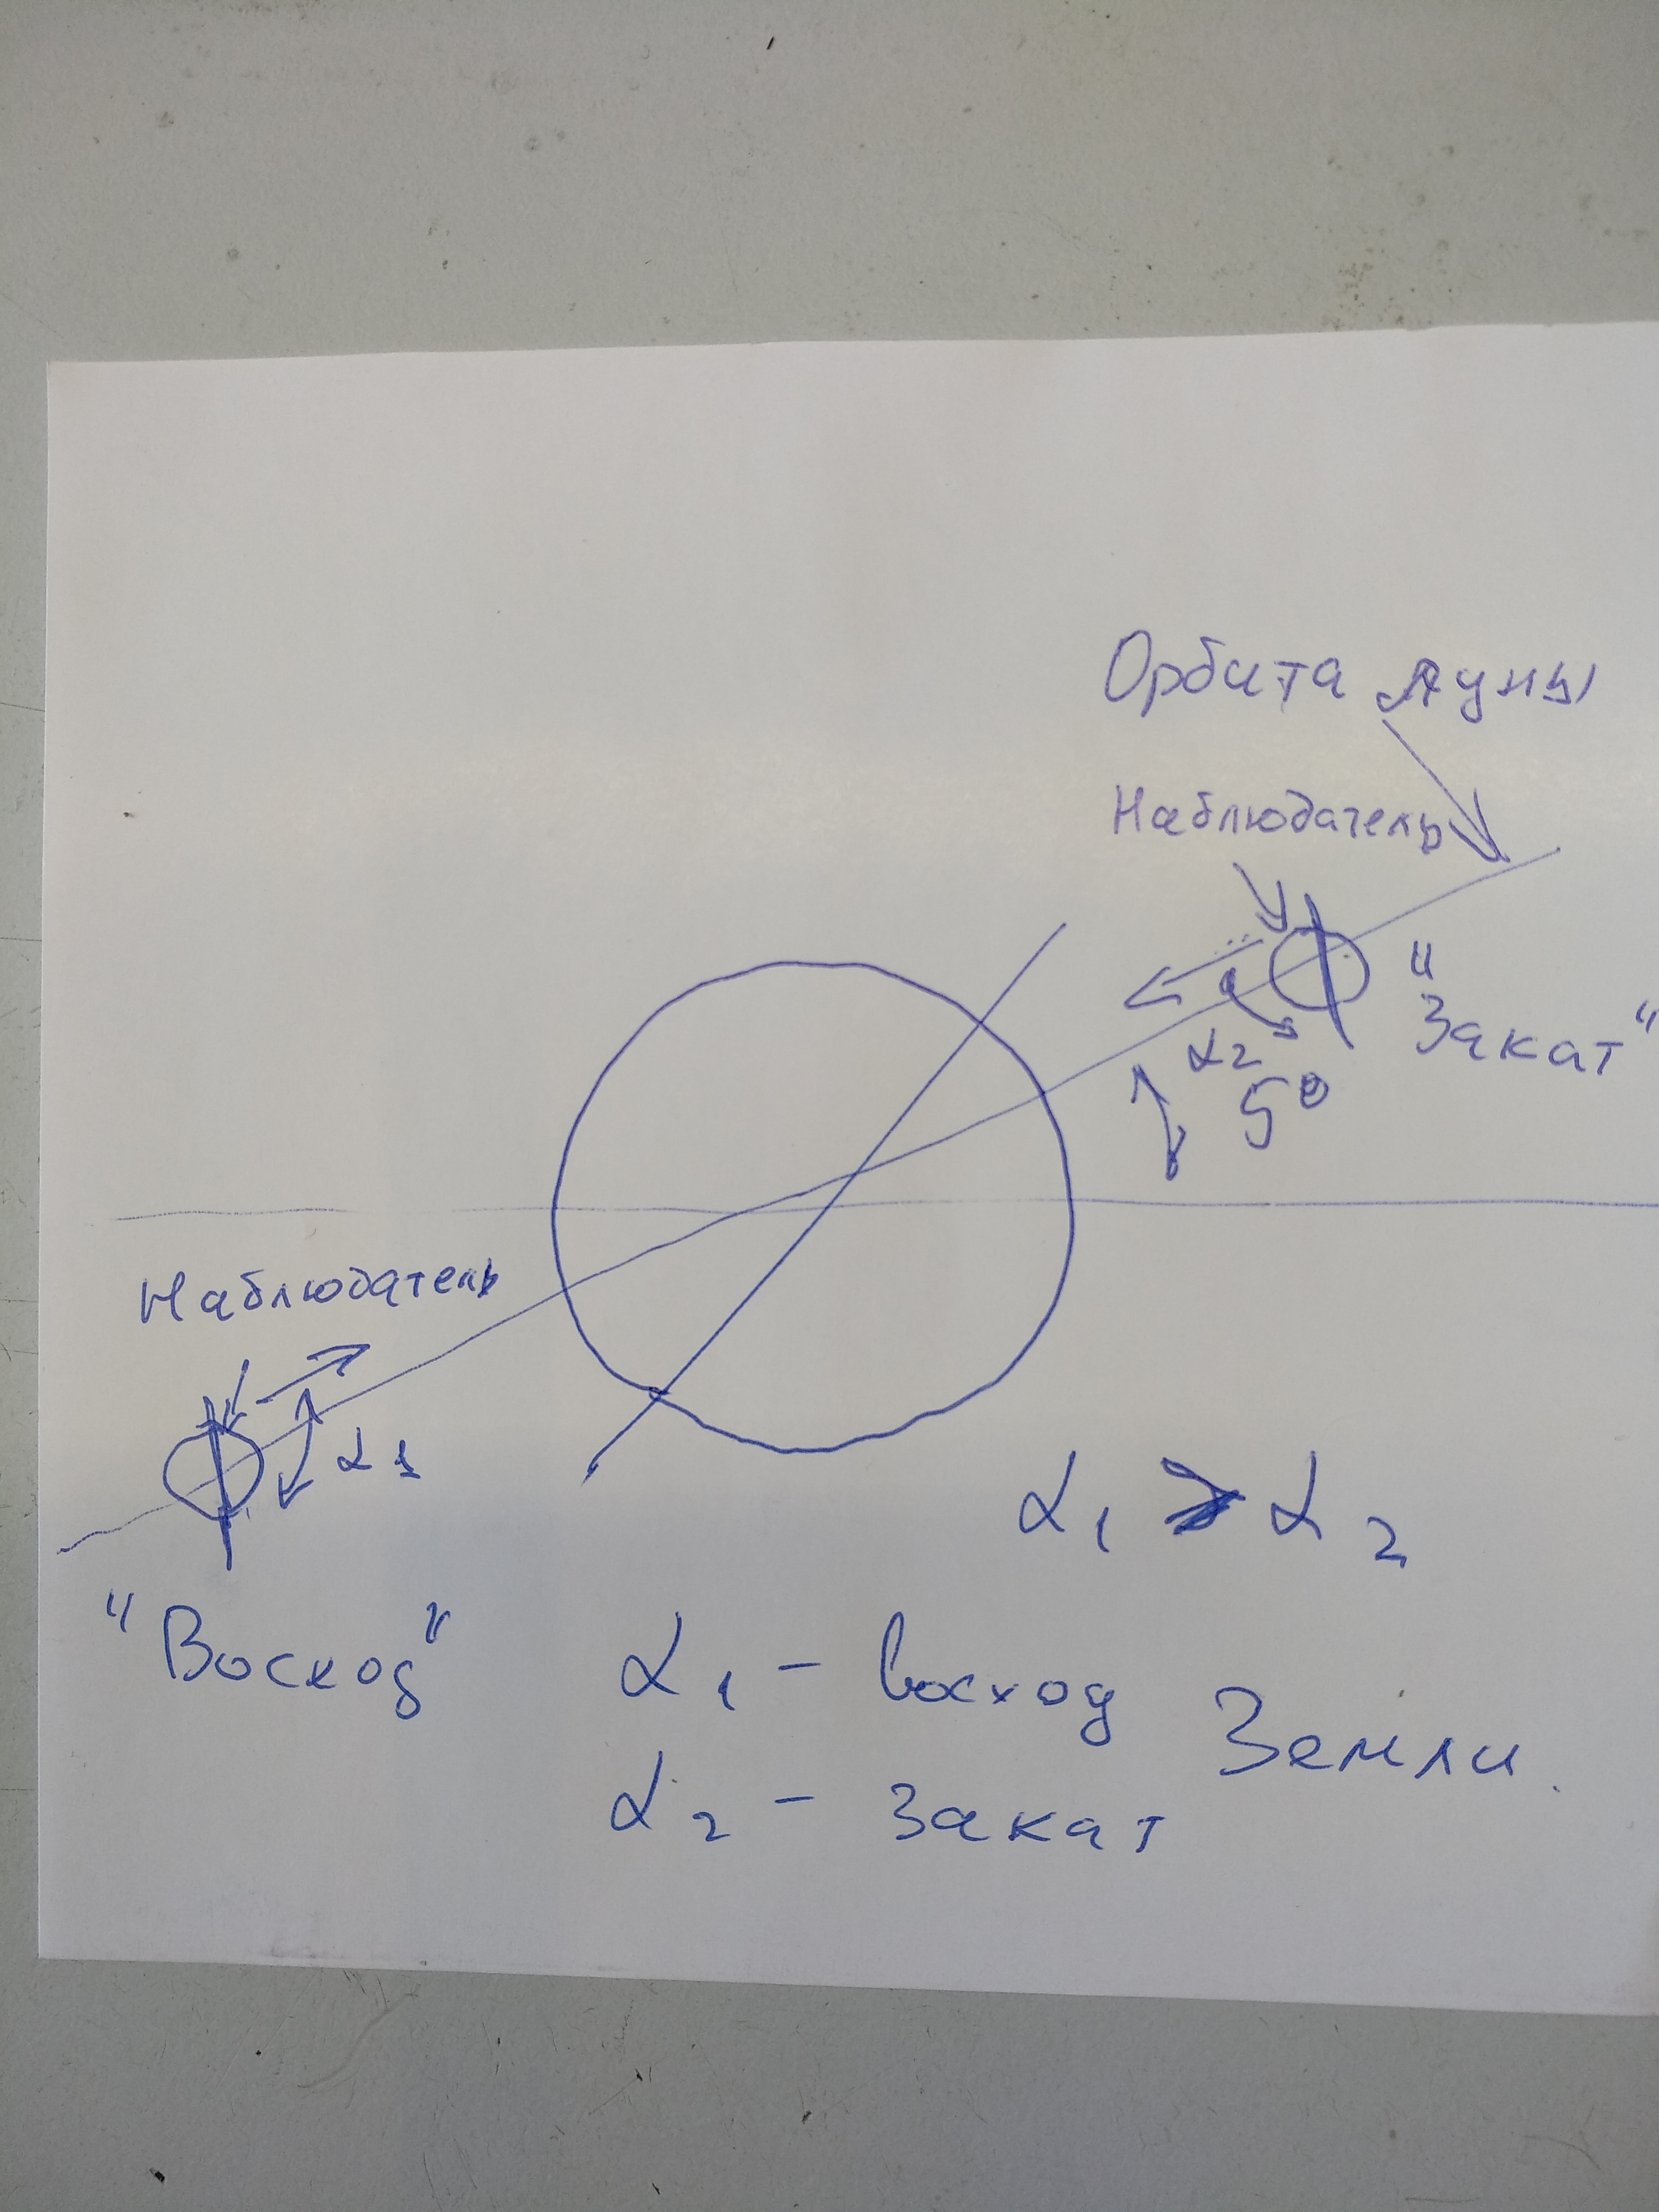 Орбита Луны
Наблюдатель
"Закат"
α2
5°
Наблюдатель
α1
"Восход"
α1 > α2
α1 - восход
Земли.
α2 - закат